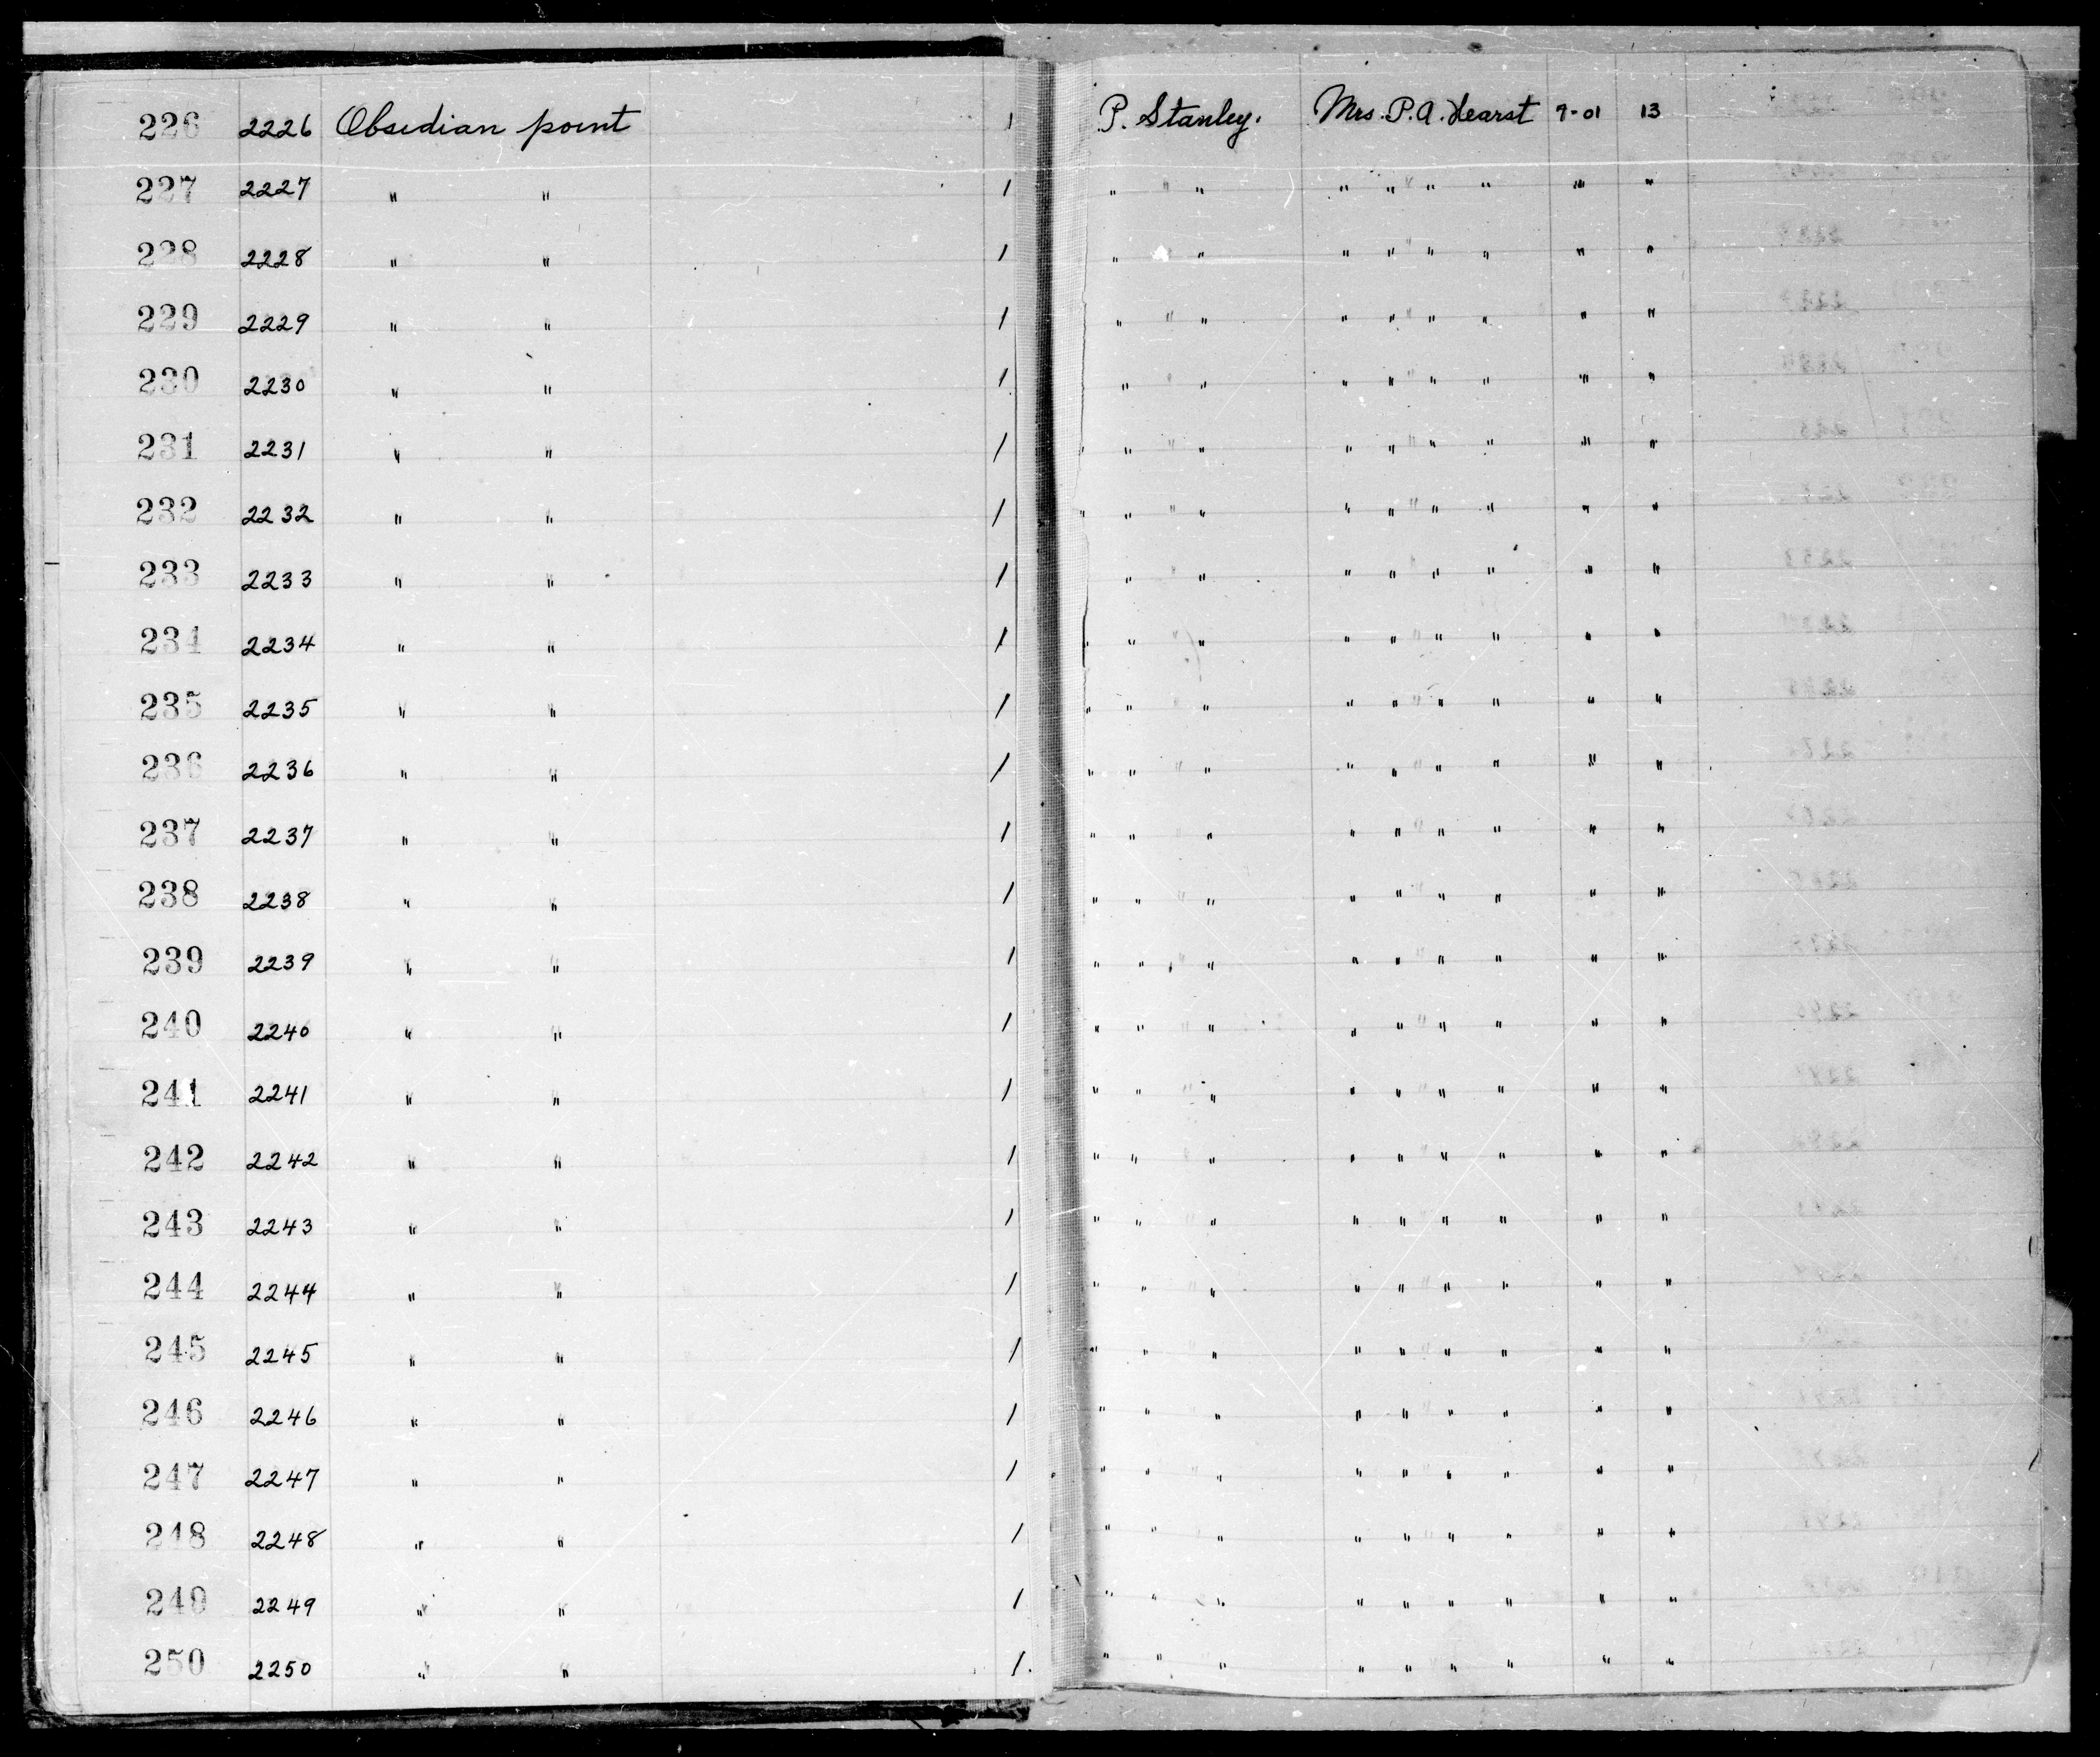 226 2226 Obsidian point 1 P. Stanley. Mrs. P. A. Hearst 7-01 13
227 2227 " " 1 " " " " " " " " " "
228 2228 " " 1 " " " " " " " "
229 2229 " " 1 " " " " " " " " " "
230 2230 " " 1 " " " " " " " " " "
231 2231 " " 1 " " " " " " " " " "
232 2232 " " 1 " " " " " " " " " "
233 2233 " " 1 " " " " " " " " " "
234 2234 " " 1 " " " " " " " " " "
235 2235 " " 1 " " " " " " " " " "
236 2236 " " 1 " " " " " " " " " "
237 2237 " " 1 " " " " " " " " " "
238 2238 " " 1 " " " " " " " " " "
239 2239 " " 1 " " " " " " " " " "
240 2240 " " 1 " " " " " " " " " "
241 2241 " " 1 " " " " " " " " " "
242 2242 " " 1 " " " " " " " " " "
243 2243 " " 1 " " " " " " " " " "
244 2244 " " 1 " " " " " " " " " "
245 2245 " " 1 " " " " " " " " " "
246 2246 " " 1 " " " " " " " " "
247 2247 " " 1 " " " " " " " " " "
248 2248 " " 1 " " " " " " " " " "
249 2249 " " 1 " " " " " " " " "
250 2250 " " 1. " " " " " " " " " "